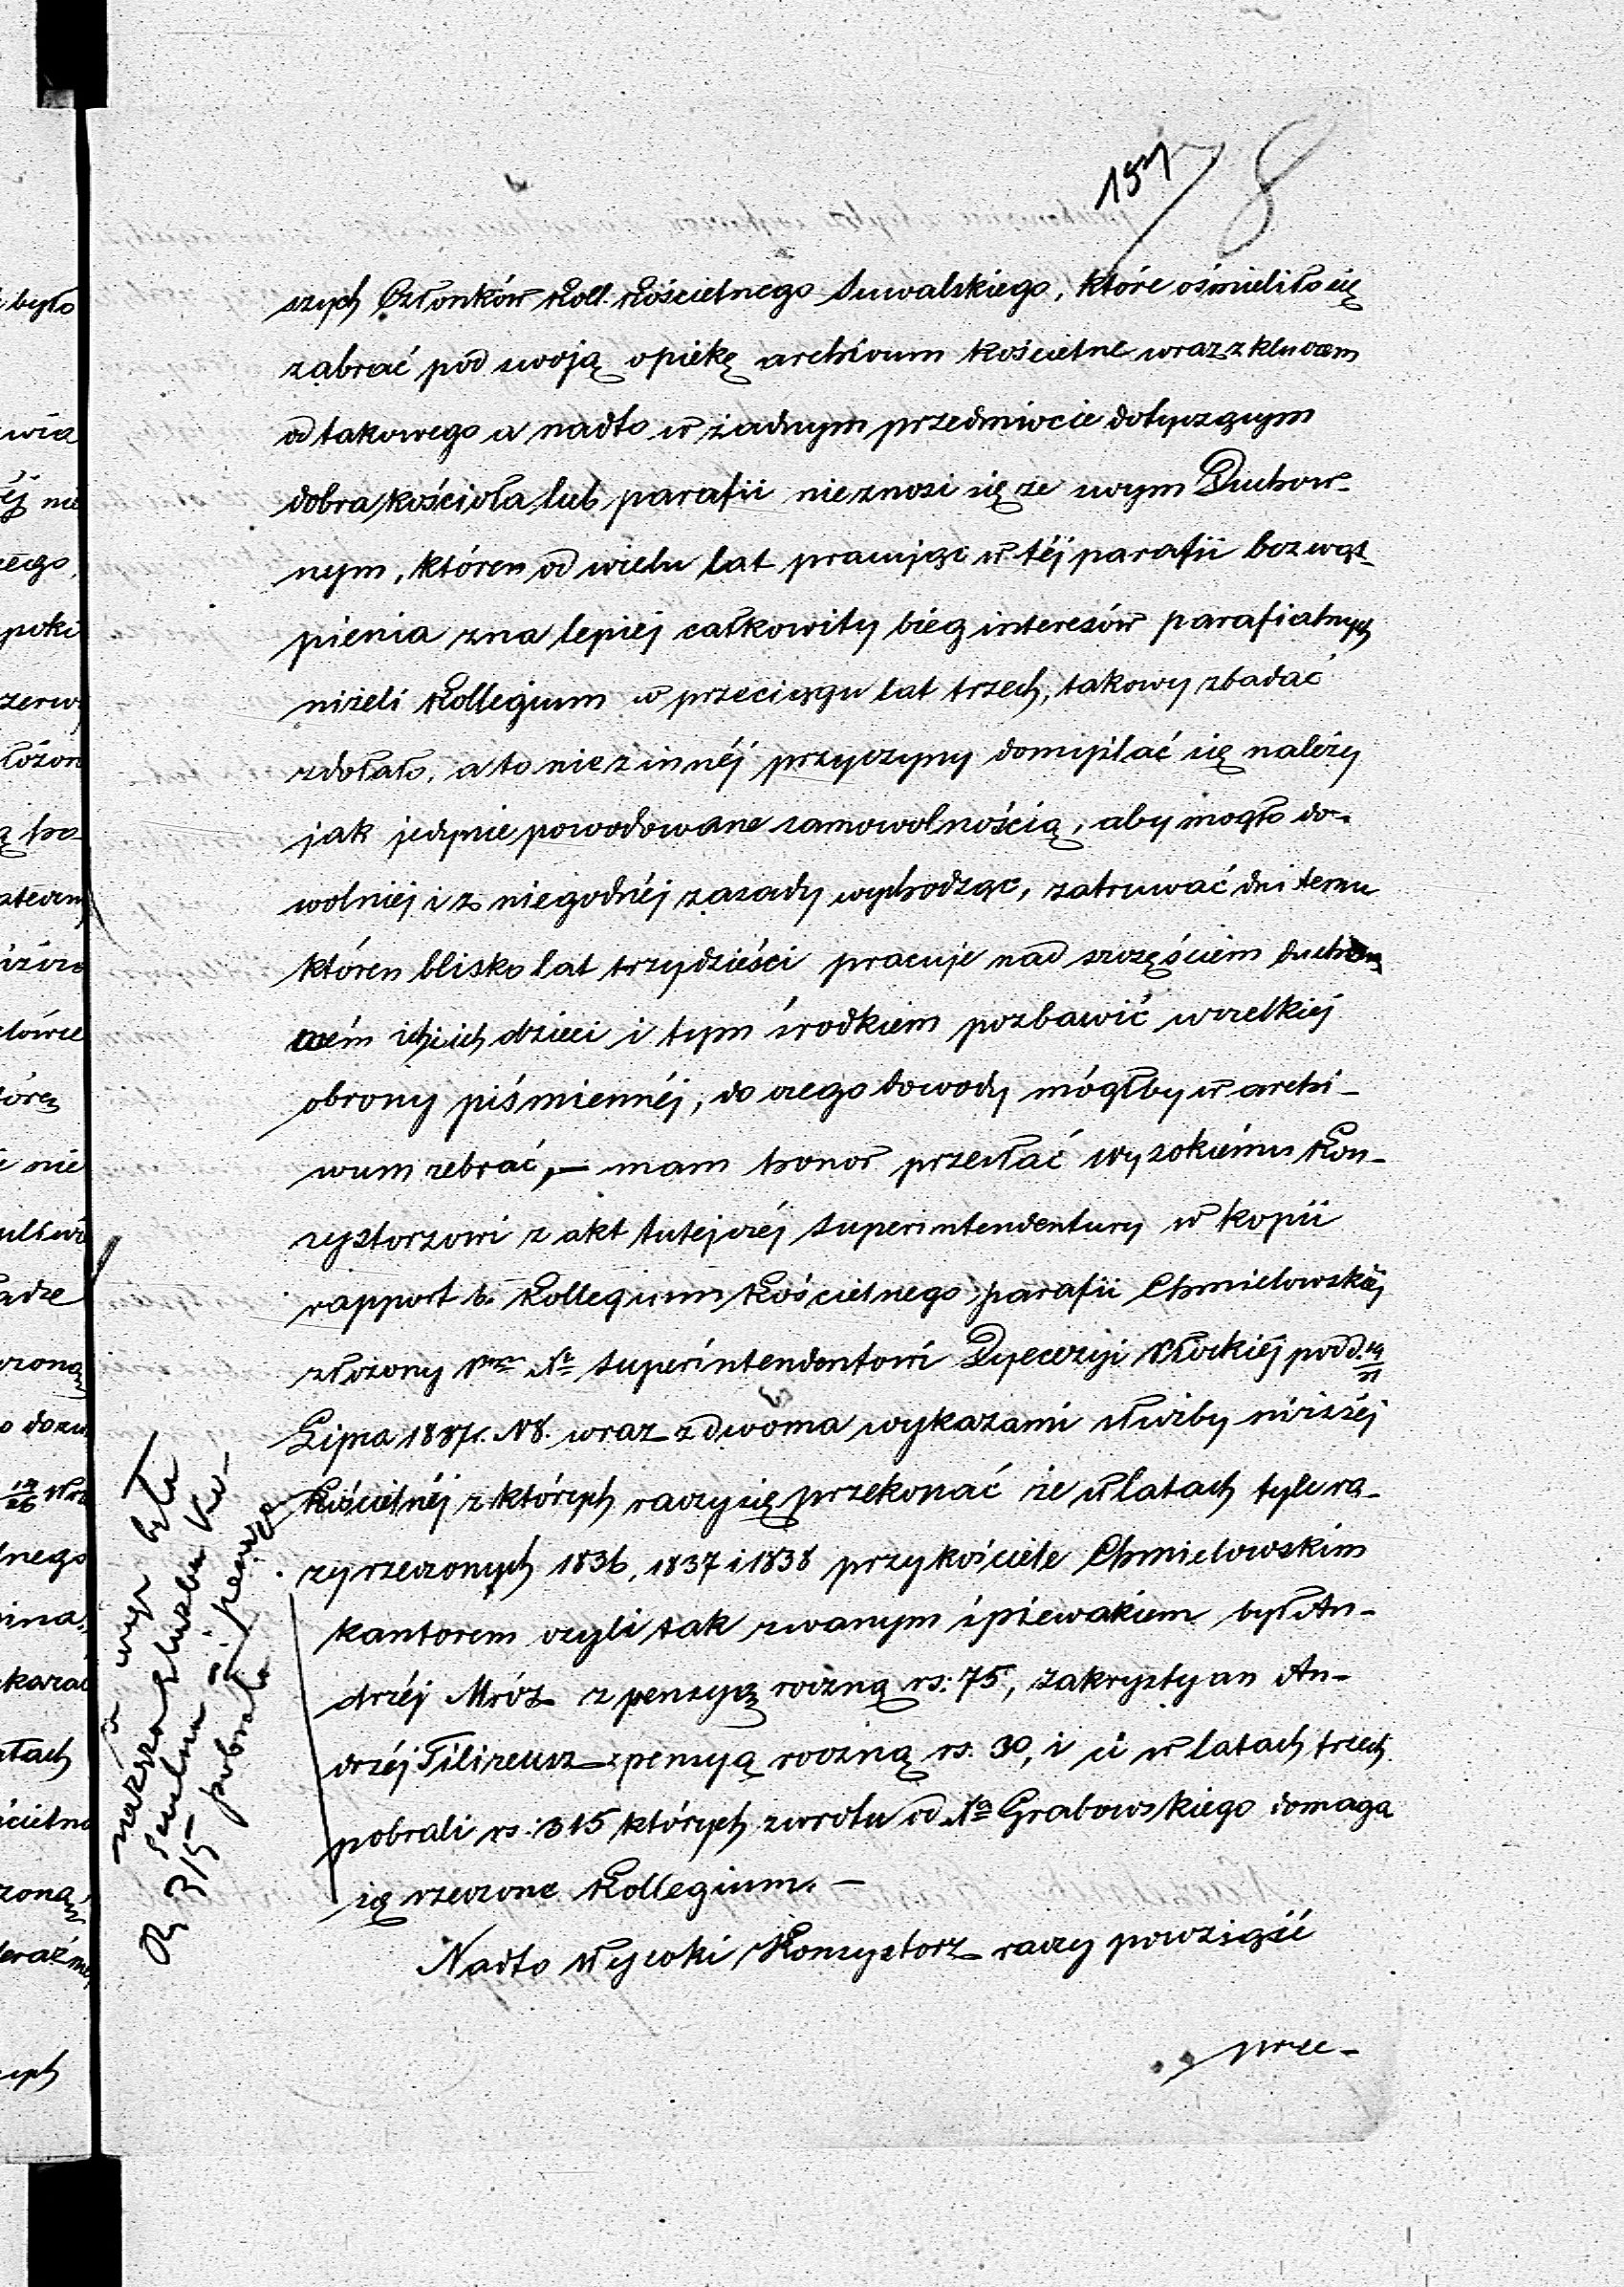 157 8
szych Członków Koll. Kościelnego Suwalskiego, które ośmieliło się
zabrać pod swoją opiekę archivum kościelne wraz z kluczem
od takowego a nadto w żadnym przedmiocie dotyczącym
dobra kościoła lub parafii nieznosi się ze swym Duchow-
nym, któren od wielu lat pracując w téj parafii bez wąt-
pienia zna lepiéj całkowity bieg interesów parafialnych
niżeli Kollegium w przeciągu lat trzech, takowy zbadać
zdołało, a to nie z innéj przyczyny domyślać się należy
jak jedynie powodowane samowolnością, aby mogło do-
wolniéj i z niegodnéj zasady wychodząc, zatruwać dni temu
któren blisko lat trzydzieści pracuje nad szczęściem
ich i ich dzieci i tym środkiem pozbawić wszelkiéj
obrony piśmiennéj, do czego dowody mógłby w archi-
wum zebrać, — mam honor przesłać Wysokiému Kon-
systorzowi z akt tutejszéj Superintendentury w kopii
rapport b. Kollegium Kościelnego parafii Chmielowskiéj
złożony Superintendentowi Dyecezyi Płockiéj pod d. 19/31
Lipca 1837 r. N 8. wraz z dwoma wykazami służby niższéj
Kościelnéj z których raczy się przekonać że w latach tyle ra-
zy rzeczonych 1836, 1837 i 1838 przy kościele Chmielowskim
kantorem czyli tak zwanym śpiewakiem był An-
drzéj Mróz z pensyą roczną rs: 75, zakrystyan An-
drzéj Tilizeusz z pensyą roczną rs. 30, i ci w latach trzech
pobrali rs: 315 których zwrotu od Xa Grabowskiego domaga
się rzeczone Kollegium. —
Nadto Wysoki Konsystorz raczy powziąść
prze-
niższa służba
pensye
Rs 315 pobrała